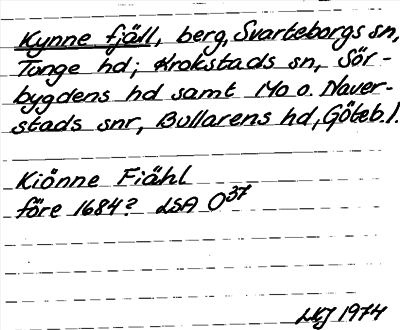 Kynne fjäll, berg, Svarteborgs sn,
Tunge hd; Krokstads sn, Sör-
bygdens hd samt Mo o. Naver-
stads snr, Bullarens hd, Göteb. l.
Kiönne Fiähl
före 1684? LSA O37
1974